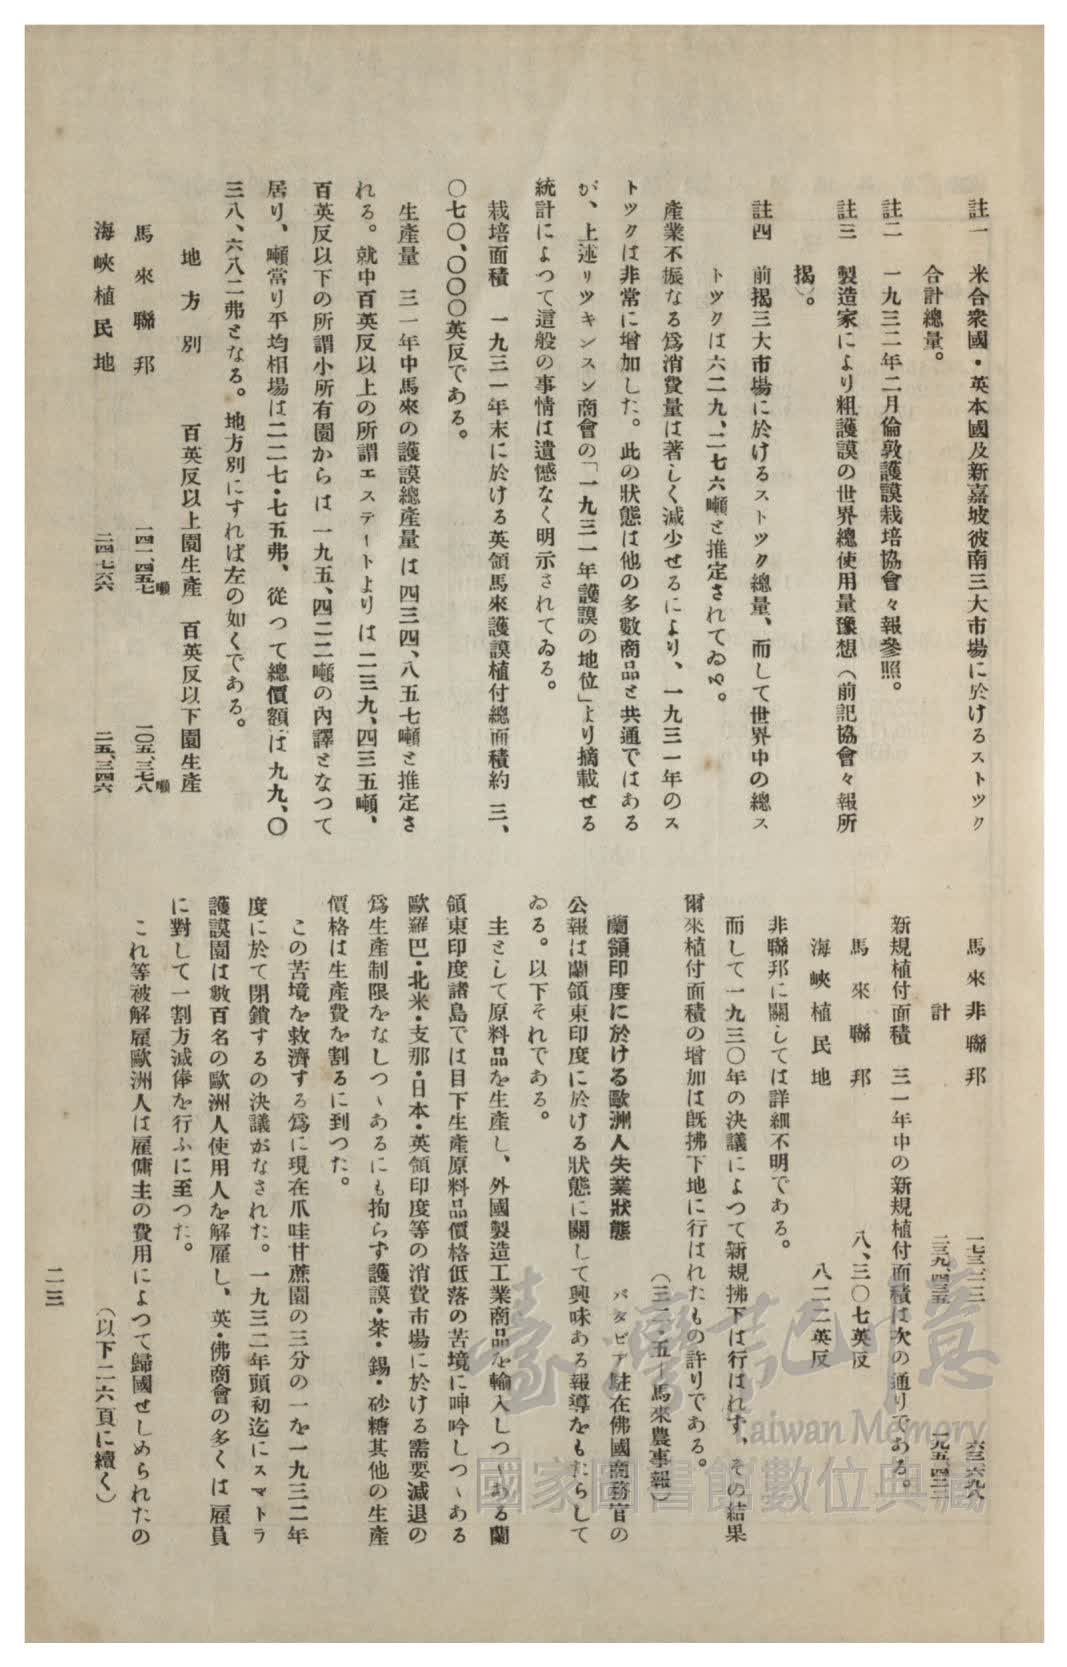 註一　米合衆國・英本國及新嘉坡彼南三大市場に於けるストツク
合計總量。
註二　一九三二年二月倫敦護謨栽培協會々報參照。
註三　製造家により粗護謨の世界總使用量豫想（前記協會々報所
揭）。
註四　前揭三大市場に於けるストツク總量、而して世界中の總ス
トツクは六二九、二七六噸と推定されてゐる。
產業不振なる爲消費量は著しく減少せるにより、一九三一年のス
トツクは非常に增加した。此の狀態は他の多數商品と共通ではある
が、上述リツキンスン商會の「一九三一年護謨の地位」より摘載せる
統計によつて這般の事情は遺憾なく明示されてゐる。
栽培面積　一九三一年末に於ける英領馬來護謨植付總面積約三、
〇七〇、〇〇〇英反である。
生產量　三一年中馬來の護謨總產量は四三四、八五七噸と推定さ
れる。就中百英反以上の所謂エステートよりは二三九、四三五噸、
百英反以下の所謂小所有園からは一九五、四二二噸の內譯となつて
居り、噸當り平均相場は二二七・七五弗、從つて總價額は九九、〇
三八、六八二弗となる。地方別にすれば左の如くである。
地方別　百英反以上園生產　百英反以下園生產
馬來聯邦　一四一、四五七噸　一〇五、三七八噸
海峽植民地　二四七六六　二五、三四六
馬來非聯邦　七三二一三　六三六九八
計　二三九、四三五　一九五、四二二
新規植付面積　三一年中の新規植付面積は次の通りである。
馬來聯邦　八、三〇七英反
海峽植民地　八二二英反
非聯邦に關しては詳細不明である。
而して一九三〇年の決議によつて新規拂下は行はれず、その結果
爾來植付面積の增加は既拂下地に行はれたもの許りである。
（三二・五ー馬來農事報）
蘭領印度に於ける歐洲人失業狀態　バタビア駐在佛國商務官の
公報は蘭領東印度に於ける狀態に關して興味ある報導をもたらして
ゐる。以下それである。
主として原料品を生產し、外國製造工業商品を輸入しつゝある蘭
領東印度諸島では目下生產原料品價格低落の苦境に呻吟しつゝある
歐羅巴・北米・支那・日本・英領印度等の消費市場に於ける需要減退の
爲生產制限をなしつゝあるにも拘らず護謨・茶・錫・砂糖其他の生產
價格は生產費を割るに到つた。
この苦境を救濟する爲に現在爪哇甘蔗園の三分の一を一九三二年
度に於て閉鎖するの決議がなされた。一九三二年頭初迄にスマトラ
護謨園は數百名の歐洲人使用人を解雇し、英・佛商會の多くは雇員
に對して一割方減俸を行ふに至つた。
これ等被解雇歐洲人は雇傭主の費用によつて歸國せしめられたの
（以下二六頁に續く）
二三
臺灣記憶
Taiwan Memory
國家圖書館數位典藏